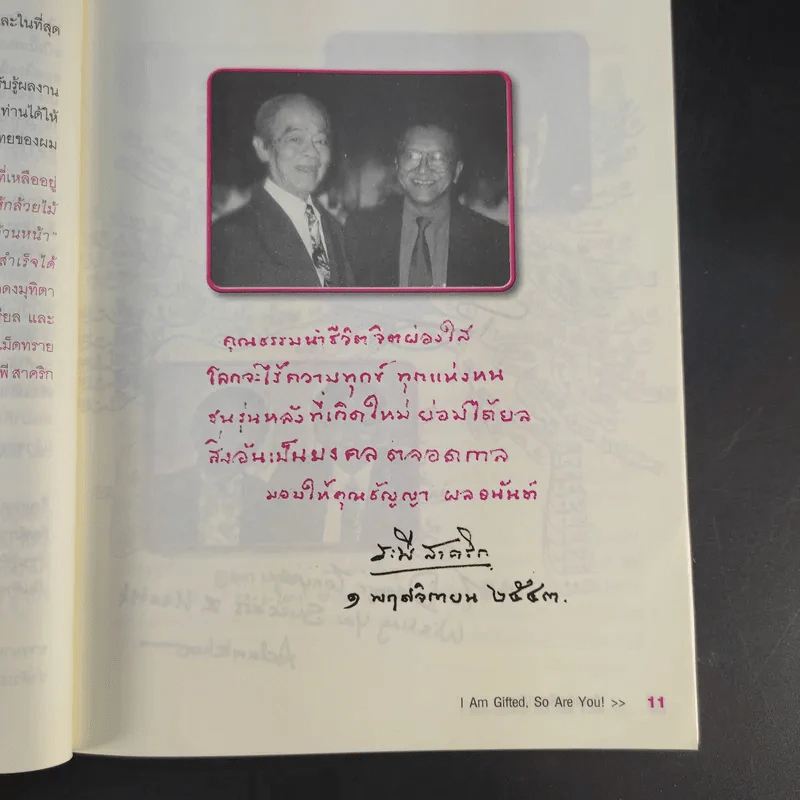 ละในที่สุด
รับรู้ผลงาน
ท่านได้ให้
ทยของผม
ที่เหลืออยู่
รักกล้วยไม้
ถ้วนหน้า"
สำเร็จได้
ดงมุทิตา
เรียล และ
เม็ดทราย
พี สาคริก
คุณธรรมนำชีวิต จิตผ่องใส
โลกจะไร้ความทุกข์ ทุกแห่งหน
ชนรุ่นหลังที่เกิดใหม่ ย่อมได้ยล
สิ่งอันเป็นมงคล ตลอดกาล
มอบให้คุณธัญญา ผลอนันต์
ระพี สาคริก
๑ พฤศจิกายน ๒๕๔๓.
I Am Gifted, So Are You! >> 11